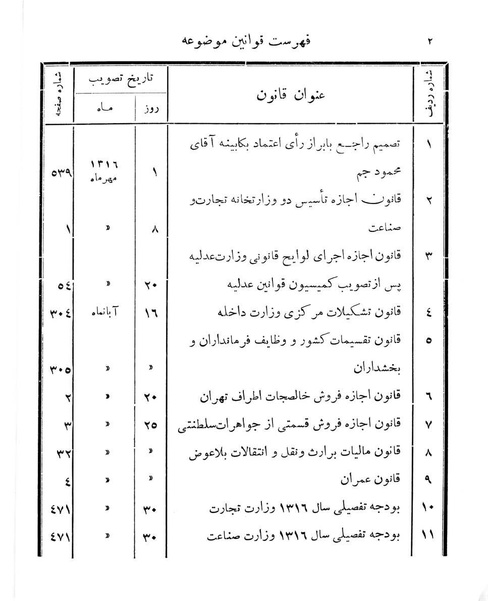 ۲ فهرست قوانین موضوعه
شماره ردیف عنوان قانون تاریخ تصویب شماره صفحه
روز ماه
۱ تصمیم راجع بابراز رأی اعتماد بکابینه آقای ۱۳۱۶
محمود جم ۱ مهرماه ۵۳۹
۲ قانون اجازه تأسیس دو وزارتخانه تجارت و
صناعت ۸ » ۱
۳ قانون اجازه اجرای لوایح قانونی وزارت عدلیه
پس از تصویب کمیسیون قوانین عدلیه ۲۰ » ٥٤
٤ قانون تشکیلات مرکزی وزارت داخله ۱۶ آبانماه ۳۰٤
۵ قانون تقسیمات کشور و وظایف فرمانداران و
بخشداران » » ۳۰۵
۶ قانون اجازه فروش خالصجات اطراف تهران ۲۰ » ۲
۷ قانون اجازه فروش قسمتی از جواهرات سلطنتی ۲۵ » ۳
۸ قانون مالیات برارث ونقل و انتقالات بلاعوض » » ۳۲
۹ قانون عمران » » ٤
۱۰ بودجه تفصیلی سال ۱۳۱۶ وزارت تجارت ۳۰ » ٤۷۱
۱۱ بودجه تفصیلی سال ۱۳۱۶ وزارت صناعت ۳۰ » ٤۷۱